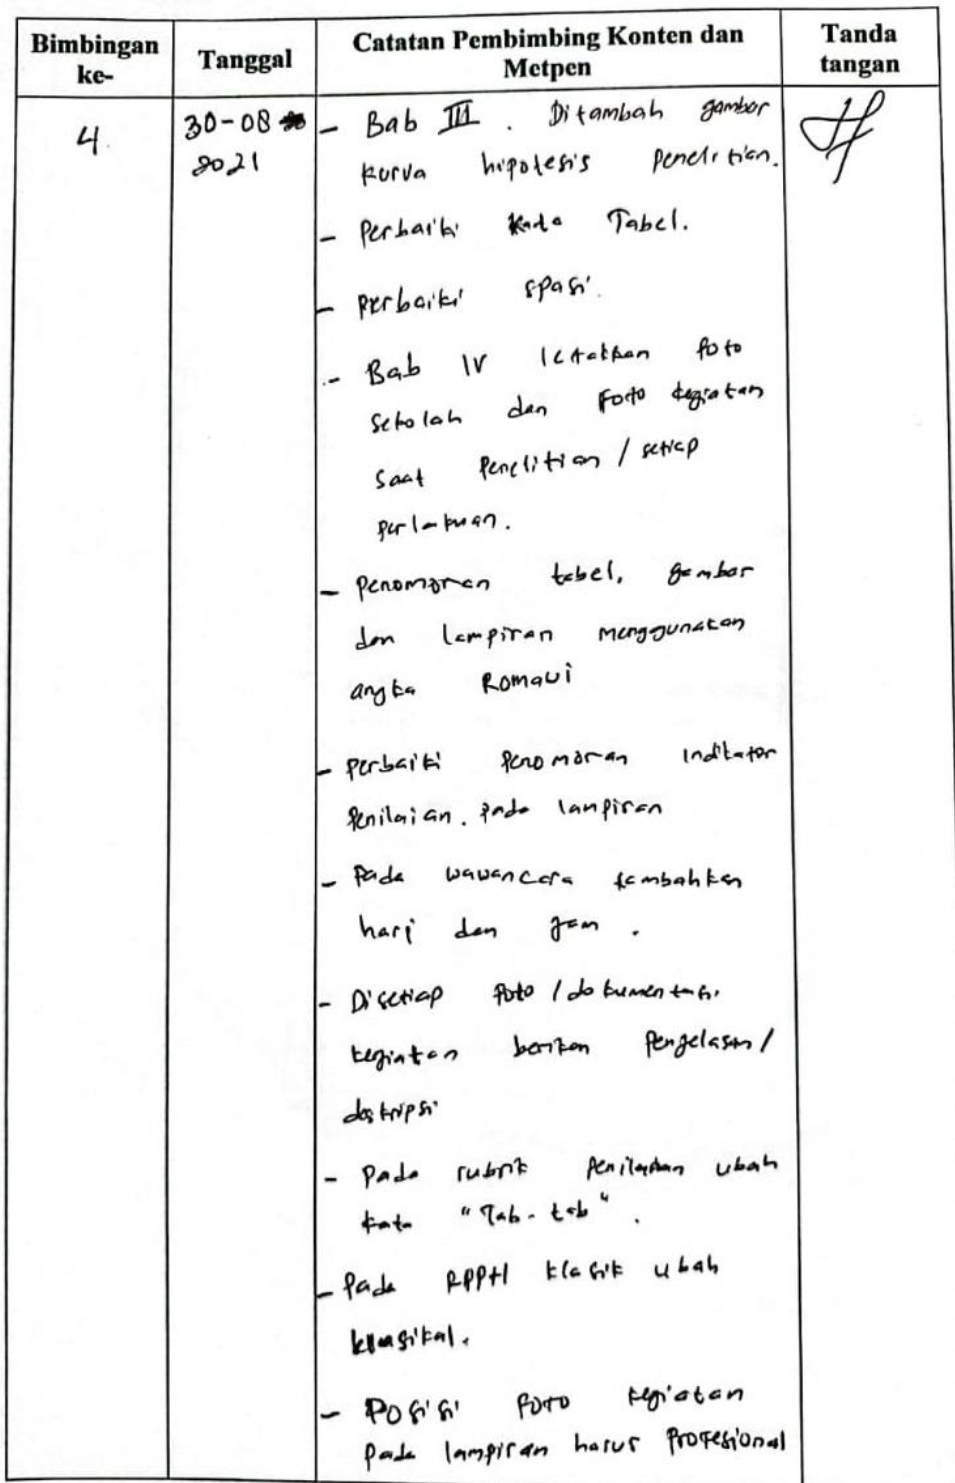 Bimbingan ke-
Tanggal
Catatan Pembimbing Konten dan Metpen
Tanda tangan
4.
30-08
2021
- Bab III. Ditambah gambar
kurva hipotesis Penelitian.
- Perbaiki Kata Tabel.
- perbaiki spasi.
- Bab IV letakkan foto
sekolah dan Foto kegiatan
saat Penelitian / setiap
perlakuan.
- Penomoran tabel, gambar
dan lampiran menggunakan
angka Romawi
- perbaiki Penomoran Indikator
Penilaian. pada lampiran
- Pada wawancara tambahkan
hari dan jam.
- Disetiap foto / dokumentasi
kegiatan berikan Penjelasan /
deskripsi
- Pada rubrik Penilaian ubah
kata "Tab-tab".
- Pada RPPH klasik ubah
klasikal.
- Posisi foto kegiatan
Pada lampiran harus Profesional